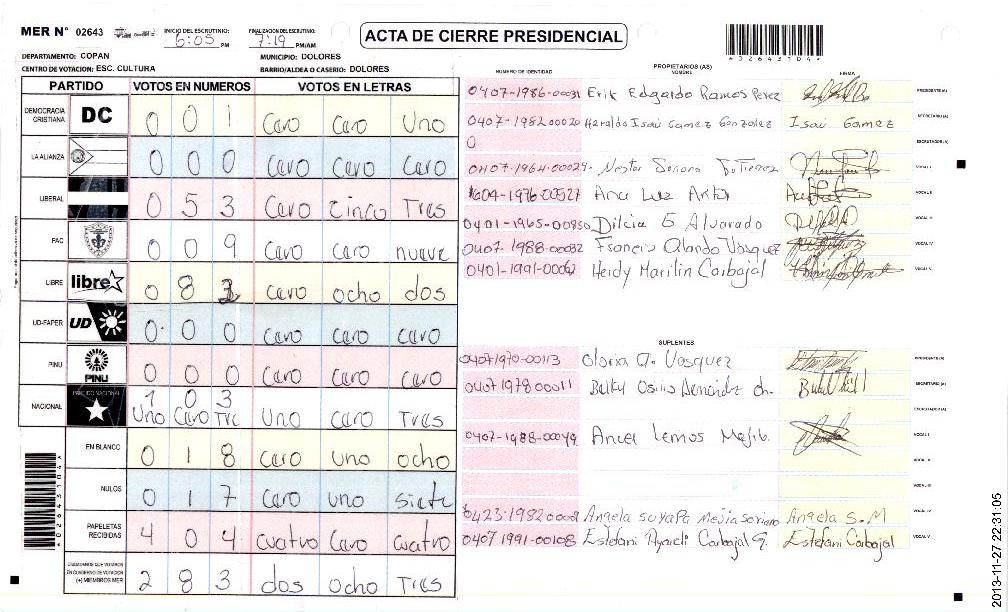 MER N° 02643 INICIO DEL ESCRUTINIO: 6:05 PM FINALIZACION DEL ESCRUTINIO: 7:19 PM/AM ACTA DE CIERRE PRESIDENCIAL
*02643104*
DEPARTAMENTO: COPAN MUNICIPIO: DOLORES
CENTRO DE VOTACION: ESC. CULTURA BARRIO/ALDEA O CASERIO: DOLORES
PARTIDO VOTOS EN NUMEROS VOTOS EN LETRAS
DEMOCRACIA CRISTIANA DC 0 0 1 Cero Cero Uno
LA ALIANZA 0 0 0 Cero Cero Cero
LIBERAL 0 5 3 Cero Cinco Tres
PAC 0 0 9 Cero Cero nueve
LIBRE libre 0 8 cero ocho dos
UD-FAPER UD 0 0 0 Cero Cero Cero
PINU PINU 0 0 0 Cero Cero Cero
NACIONAL PARTIDO NACIONAL 1 0 3 Uno Cero Tre Uno Cero Tres
EN BLANCO 0 1 8 Cero uno ocho
NULOS 0 1 7 Cero uno siete
PAPELETAS RECIBIDAS 4 0 4 cuatro Cero cuatro
CIUDADANOS QUE VOTARON EN CUADERNO DE VOTACION (+) MIEMBROS MER 2 8 3 dos ocho Tres
*02643104*
NUMERO DE IDENTIDAD PROPIETARIOS (AS) NOMBRE FIRMA
0407-1986-00031 Erik Edgardo Ramos Perez PRESIDENTE (A)
0407-1982 00020 Heraldo Isaí Gamez Gonzalez Isaí Gamez SECRETARIO (A)
0 ESCRUTADOR (A)
0407-1964-00029 Nestor Soriano Gutierrez VOCAL I
1604-1976-00527 Ana Luz VOCAL II
0401-1965-00850 Dilcia E Alvarado VOCAL III
0407-1988-00082 Francis Olando Vasquez VOCAL IV
0401-1991-0006 Heidy Marilin Carbajal VOCAL V
SUPLENTES
04071970-00113 Gloria A. Vasquez PRESIDENTE (A)
0407 1978 00011 Belky SECRETARIO (A)
ESCRUTADOR (A)
0407-1988-00049 Lemos Mejia VOCAL I
VOCAL II
VOCAL III
0423-1982 000 Angela suyapa Mejia soriano Angela S.M VOCAL IV
0407 1991-00108 Estefani Carbajal G. Estefani Carbajal VOCAL V
2013-11-27 22:31:05